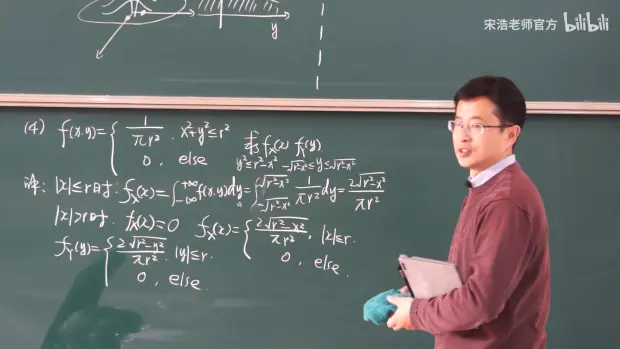 宋浩老师官方 bilibili
y
(4) f(x,y)={ 1/πr², x²+y²≤r² 求 f_X(x) f_Y(y)
0, else y²≤r²-x² -√(r²-x²)≤y≤√(r²-x²)
解: |x|≤r时. f_X(x)=∫_{-∞}^{+∞} f(x,y)dy=∫_{-√(r²-x²)}^{√(r²-x²)} 1/πr² dy=2√(r²-x²)/πr²
|x|>r时. f_X(x)=0 f_X(x)={ 2√(r²-x²)/πr², |x|≤r.
0, else.
f_Y(y)={ 2√(r²-y²)/πr², |y|≤r.
0, else.